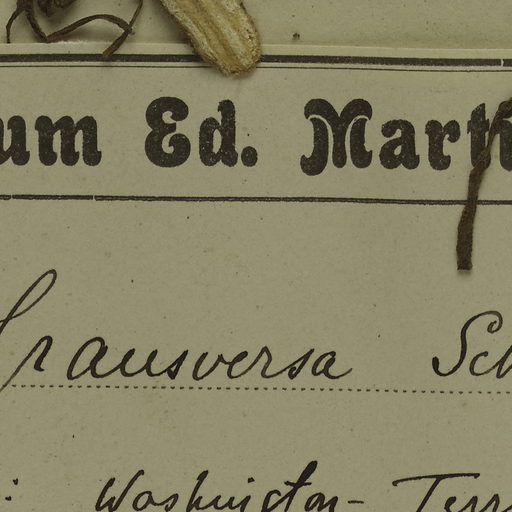 um Ed. Marti
transversa Sch
: Washington- Terr